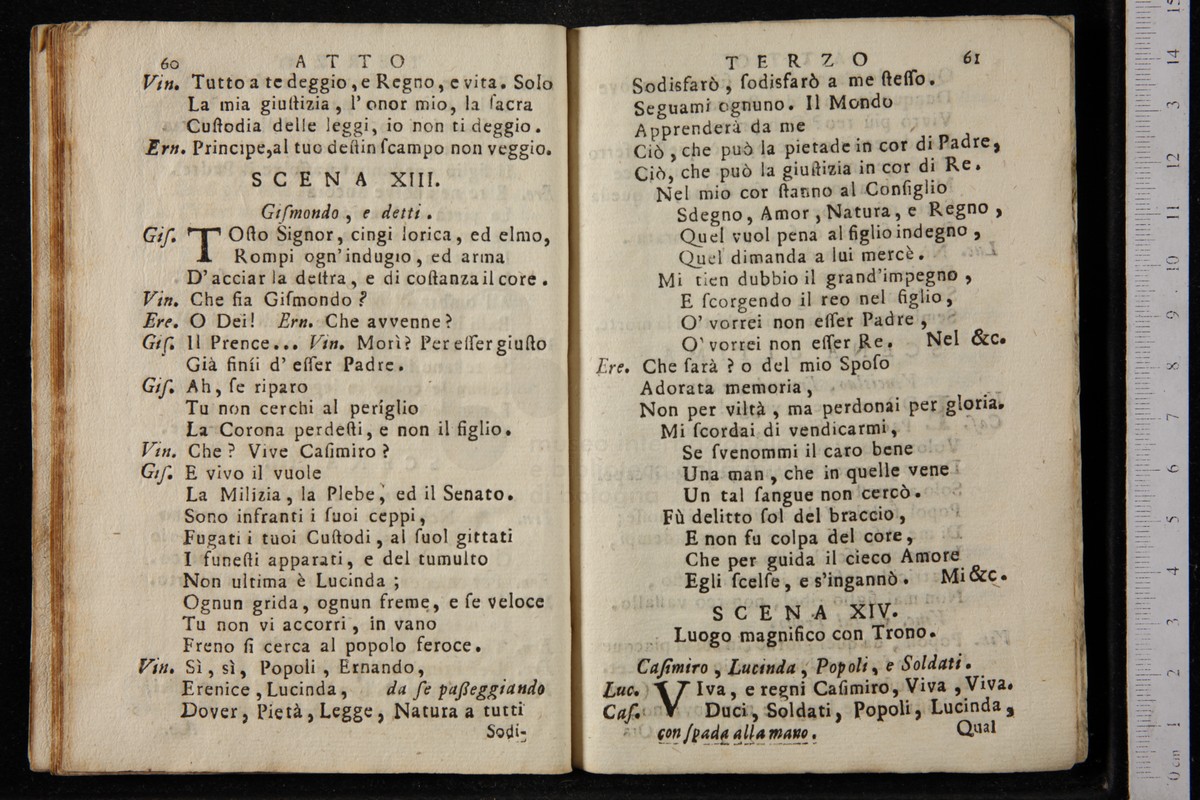 60 A T T O
Vin. Tutto a te deggio, e Regno, e vita. Solo
La mia giuſtizia, l'onor mio, la ſacra
Cuſtodia delle leggi, io non ti deggio.
Ern. Principe, al tuo deſtin ſcampo non veggio.
S C E N A XIII.
Giſmondo, e detti.
Giſ. TOſto Signor, cingi lorica, ed elmo,
Rompi ogn'indugio, ed arma
D'acciar la deſtra, e di coſtanza il core.
Vin. Che ſia Giſmondo?
Ere. O Dei! Ern. Che avvenne?
Giſ. Il Prence... Vin. Morì? Per eſſer giuſto
Già finii d'eſſer Padre.
Giſ. Ah, ſe riparo
Tu non cerchi al periglio
La Corona perdeſti, e non il figlio.
Vin. Che? Vive Caſimiro?
Giſ. E vivo il vuole
La Milizia, la Plebe, ed il Senato.
Sono infranti i ſuoi ceppi,
Fugati i tuoi Cuſtodi, al ſuol gittati
I funeſti apparati, e del tumulto
Non ultima è Lucinda;
Ognun grida, ognun freme, e ſe veloce
Tu non vi accorri, in vano
Freno ſi cerca al popolo feroce.
Vin. Sì, sì, Popoli, Ernando,
Erenice, Lucinda, da ſe paſſeggiando
Dover, Pietà, Legge, Natura a tutti
Sodi-
T E R Z O 61
Sodisfarò, ſodisfarò a me ſteſſo.
Seguami ognuno. Il Mondo
Apprenderà da me
Ciò, che può la pietade in cor di Padre,
Ciò, che può la giuſtizia in cor di Re.
Nel mio cor ſtanno al Conſiglio
Sdegno, Amor, Natura, e Regno,
Quel vuol pena al figlio indegno,
Quel dimanda a lui mercè.
Mi tien dubbio il grand'impegno,
E ſcorgendo il reo nel figlio,
O' vorrei non eſſer Padre,
O' vorrei non eſſer Re. Nel &c.
Ere. Che ſarà? o del mio Spoſo
Adorata memoria,
Non per viltà, ma perdonai per gloria.
Mi ſcordai di vendicarmi,
Se ſvenommi il caro bene
Una man, che in quelle vene
Un tal ſangue non cercò.
Fù delitto ſol del braccio,
E non fu colpa del core,
Che per guida il cieco Amore
Egli ſcelſe, e s'ingannò. Mi &c.
S C E N A XIV.
Luogo magnifico con Trono.
Caſimiro, Lucinda, Popoli, e Soldati.
Luc. VIva, e regni Caſimiro, Viva, Viva.
Caſ. Duci, Soldati, Popoli, Lucinda,
con ſpada alla mano. Qual